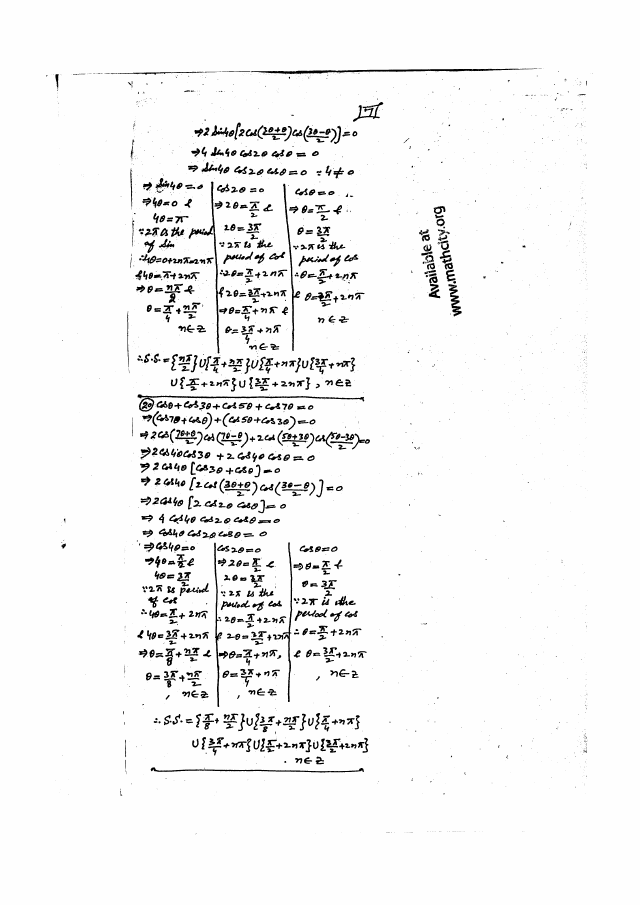 17
⇒2 Sin4θ[2Cos(3θ+θ/2)Cos(3θ-θ/2)]=0
⇒4 Sin4θ Cos2θ Cosθ = 0
⇒ Sin4θ Cos2θ Cosθ = 0 ∵ 4≠0
⇒ Sin4θ=0
⇒4θ=0 &
4θ=π
∵2π is the period
of Sin
∴4θ=0+2nπ=2nπ
&4θ=π+2nπ
⇒θ=nπ/2
θ=π/4+nπ/2
n∈Z
Cos2θ=0
⇒2θ=π/2 &
2θ=3π/2
∵2π is the
period of Cos
∴2θ=π/2+2nπ
&2θ=3π/2+2nπ
⇒θ=π/4+nπ &
θ=3π/4+nπ
n∈Z
Cosθ=0
⇒θ=π/2 &
θ=3π/2
∵2π is the
period of Cos
∴θ=π/2+2nπ
& θ=3π/2+2nπ
n∈Z
∴S.S.={nπ/2}U{π/4+nπ/2}U{π/4+nπ}U{3π/4+nπ}
U{π/2+2nπ}U{3π/2+2nπ}, n∈Z
(20) Cosθ+Cos3θ+Cos5θ+Cos7θ=0
⇒(Cos7θ+Cosθ)+(Cos5θ+Cos3θ)=0
⇒2Cos(7θ+θ/2)Cos(7θ-θ/2)+2Cos(5θ+3θ/2)Cos(5θ-3θ/2)=0
⇒2Cos4θCos3θ+2Cos4θ Cosθ=0
⇒2Cos4θ[Cos3θ+Cosθ]=0
⇒2Cos4θ[2Cos(3θ+θ/2)Cos(3θ-θ/2)]=0
⇒2Cos4θ[2Cos2θ Cosθ]=0
⇒ 4 Cos4θ Cos2θ Cosθ=0
⇒ Cos4θ Cos2θ Cosθ = 0
⇒Cos4θ=0
⇒4θ=π/2 &
4θ=3π/2
∵2π is period
of Cos
∴4θ=π/2+2nπ
& 4θ=3π/2+2nπ
⇒θ=π/8+nπ/2 &
θ=3π/8+nπ/2
, n∈Z
Cos2θ=0
⇒2θ=π/2 &
2θ=3π/2
∵2π is the
period of Cos
∴2θ=π/2+2nπ
& 2θ=3π/2+2nπ
⇒θ=π/4+nπ,
θ=3π/4+nπ
, n∈Z
Cosθ=0
⇒θ=π/2 &
θ=3π/2
∵2π is the
period of Cos
∴θ=π/2+2nπ
& θ=3π/2+2nπ
, n∈Z
∴S.S.={π/8+nπ/2}U{3π/8+nπ/2}U{π/4+nπ}
U{3π/4+nπ}U{π/2+2nπ}U{3π/2+2nπ}
. n∈Z
Available at
www.mathcity.org